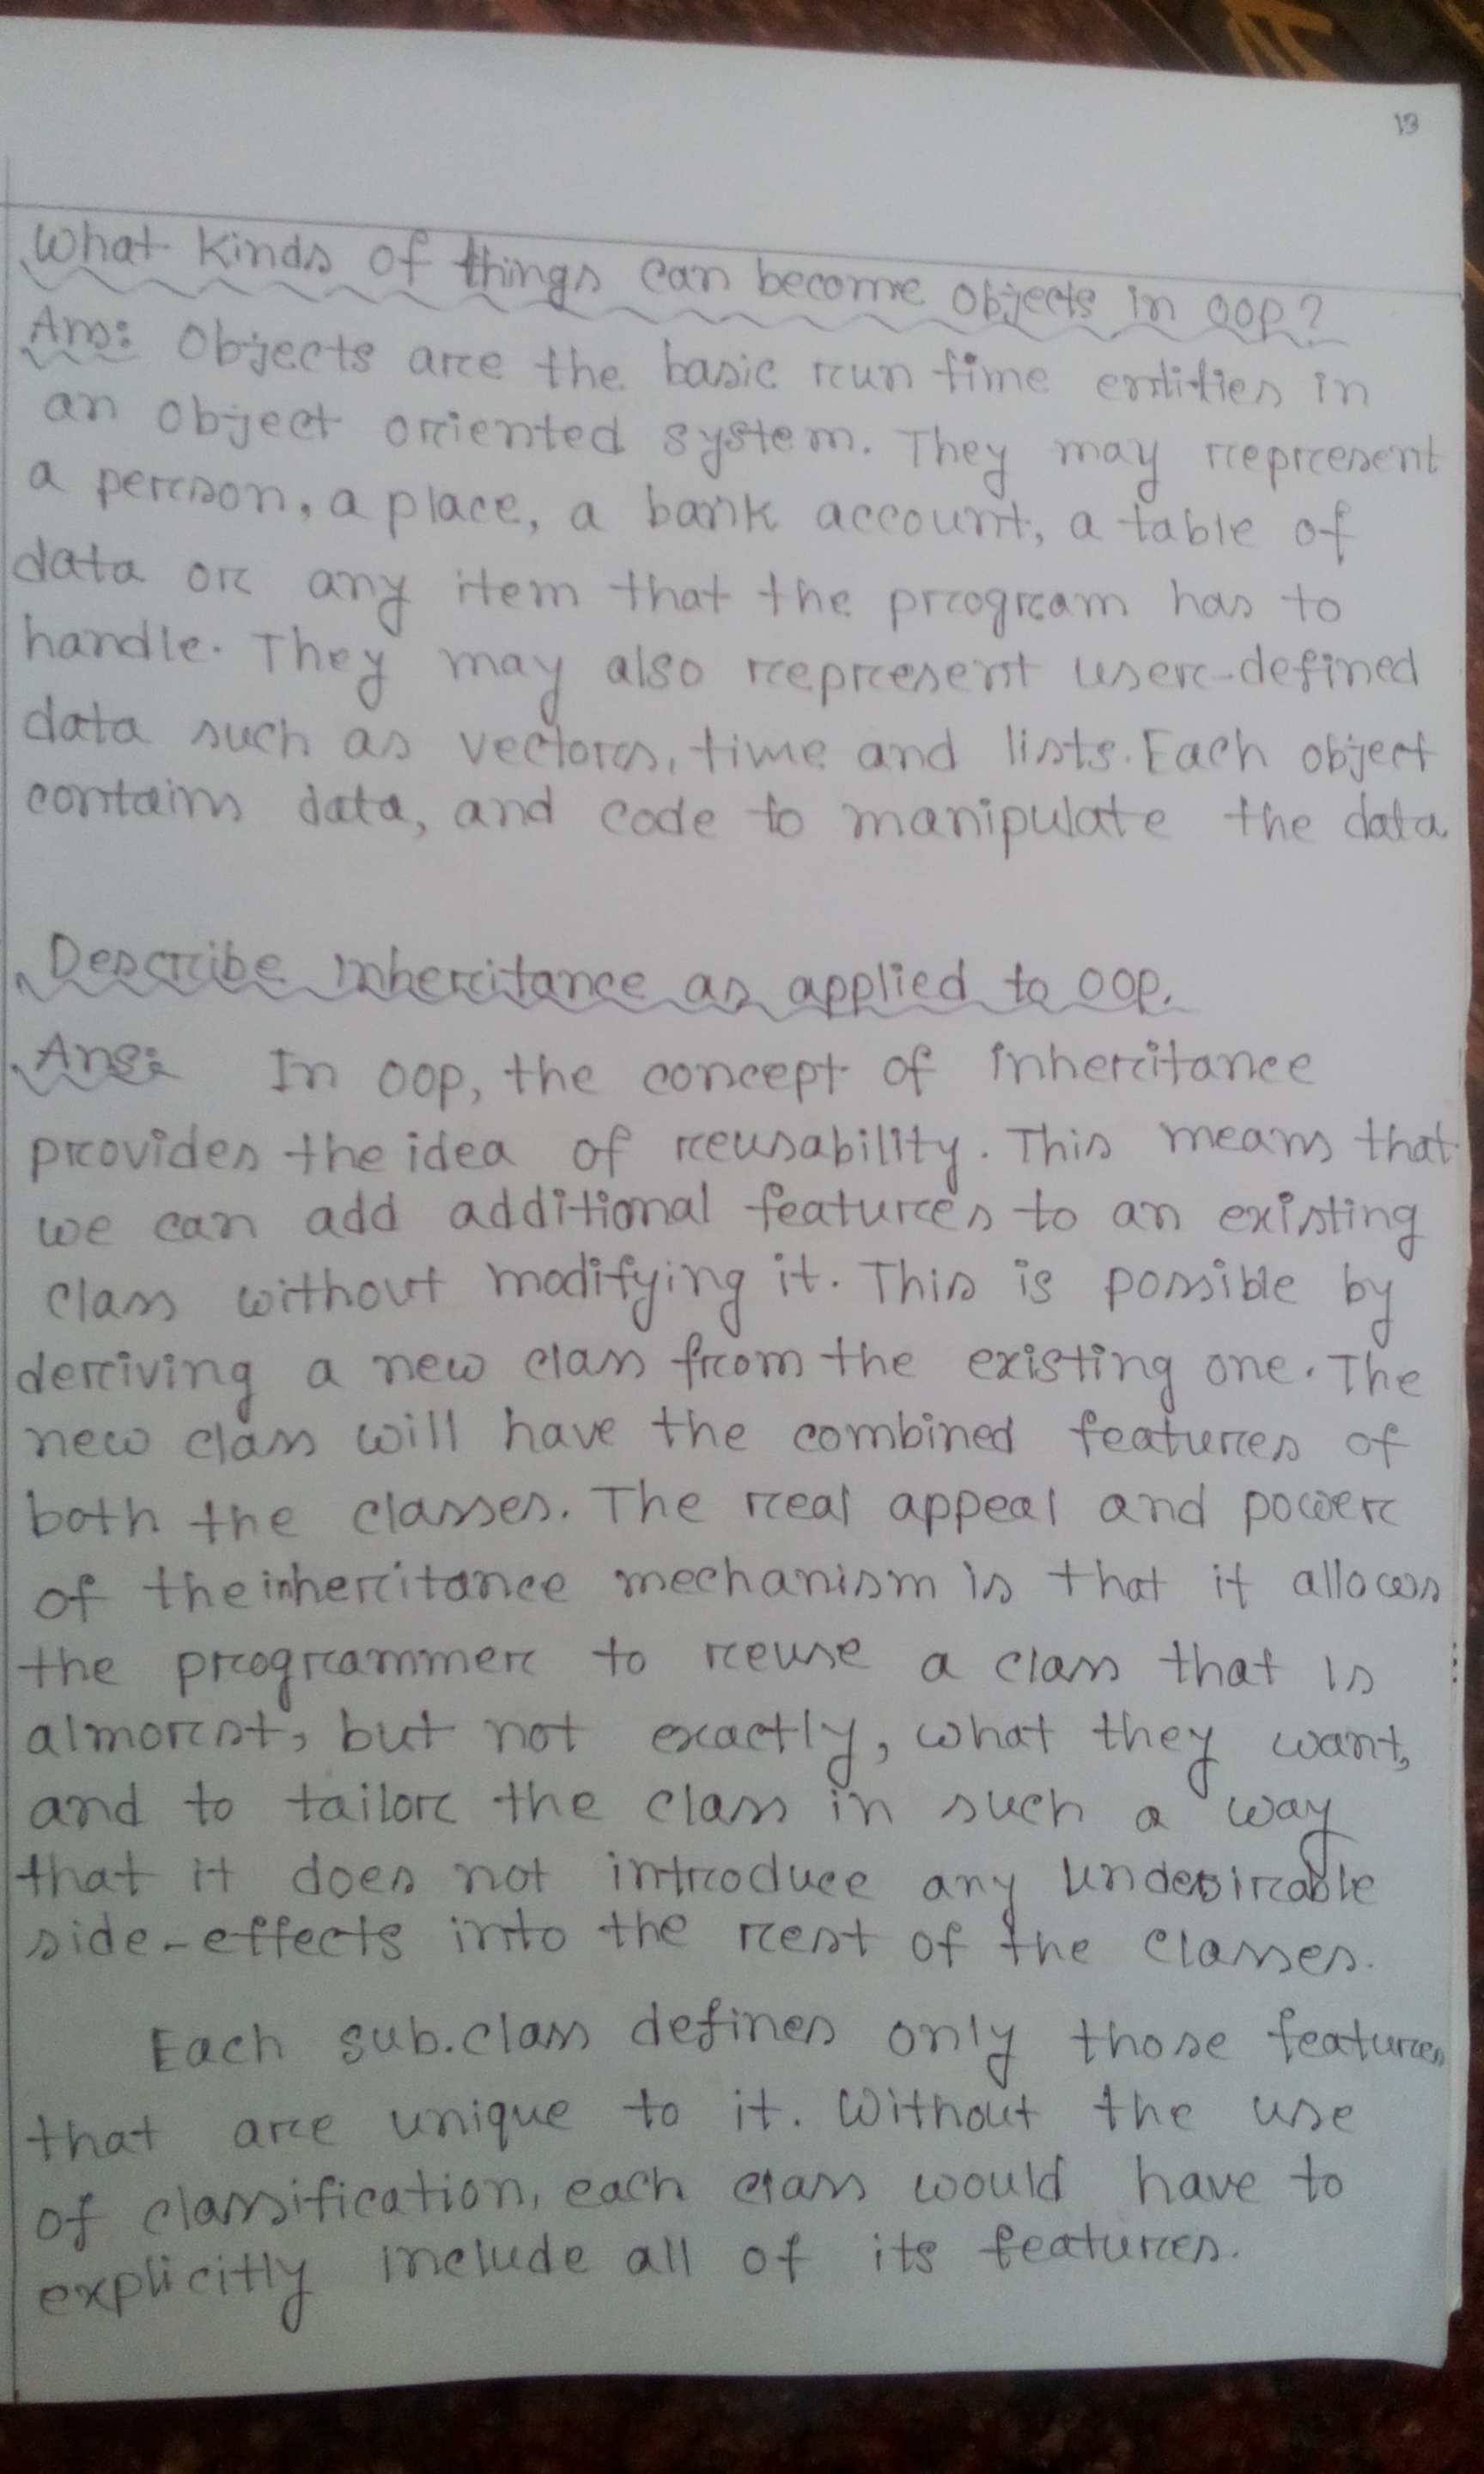 13
What kinds of things can become objects in OOP?
Ans: Objects are the basic run time entities in
an object oriented system. They may represent
a person, a place, a bank account, a table of
data or any item that the program has to
handle. They may also represent user-defined
data such as vectors, time and lists. Each object
contains data, and code to manipulate the data
Describe inheritance as applied to OOP.
Ans: In OOP, the concept of inheritance
provides the idea of reusability. This means that
we can add additional features to an existing
class without modifying it. This is possible by
deriving a new class from the existing one. The
new class will have the combined features of
both the classes. The real appeal and power
of the inheritance mechanism is that it allows
the programmer to reuse a class that is
almorst, but not exactly, what they want,
and to tailor the class in such a way
that it does not introduce any undesirable
side-effects into the rest of the classes.
Each sub.class defines only those features
that are unique to it. Without the use
of classification, each class would have to
explicitly include all of its features.